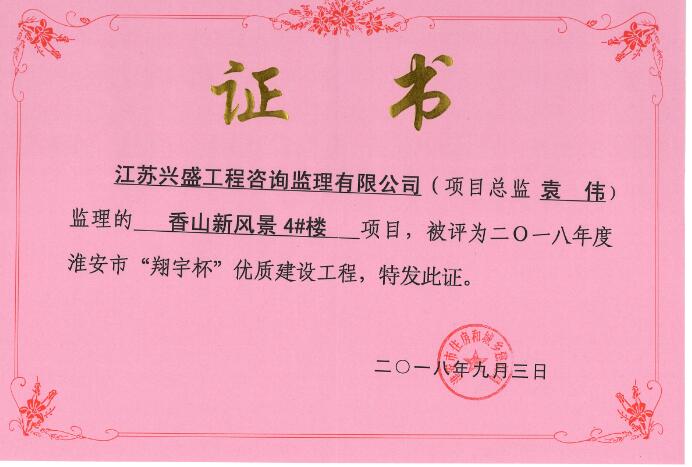 证 书
江苏兴盛工程咨询监理有限公司（项目总监 袁 伟）
监理的 香山新风景 4#楼 项目，被评为二〇一八年度
淮安市“翔宇杯”优质建设工程，特发此证。
二〇一八年九月三日